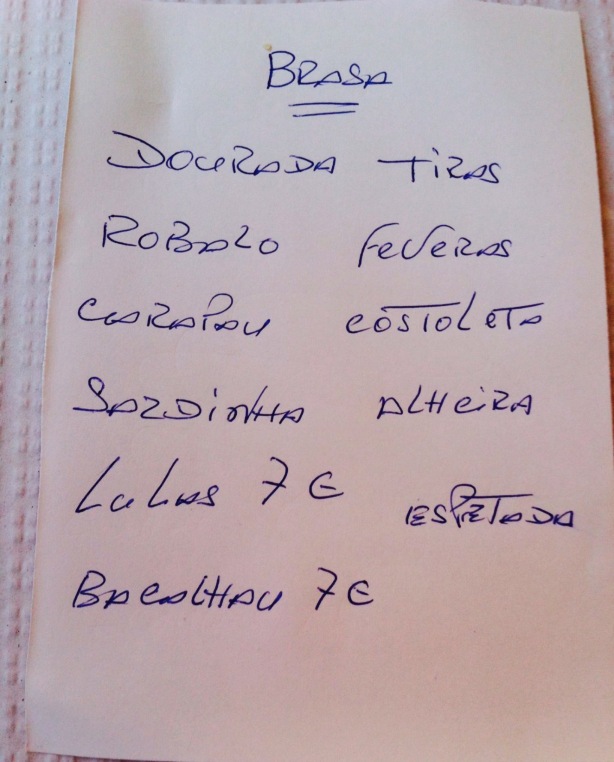 BRASA
DOURADA TiRAS
ROBALO FEVERAS
CARAPAU COSTOLETA
SARDiNHA ALHEiRA
LULAS 7 €
ESPETADA
BACALHAU 7 €